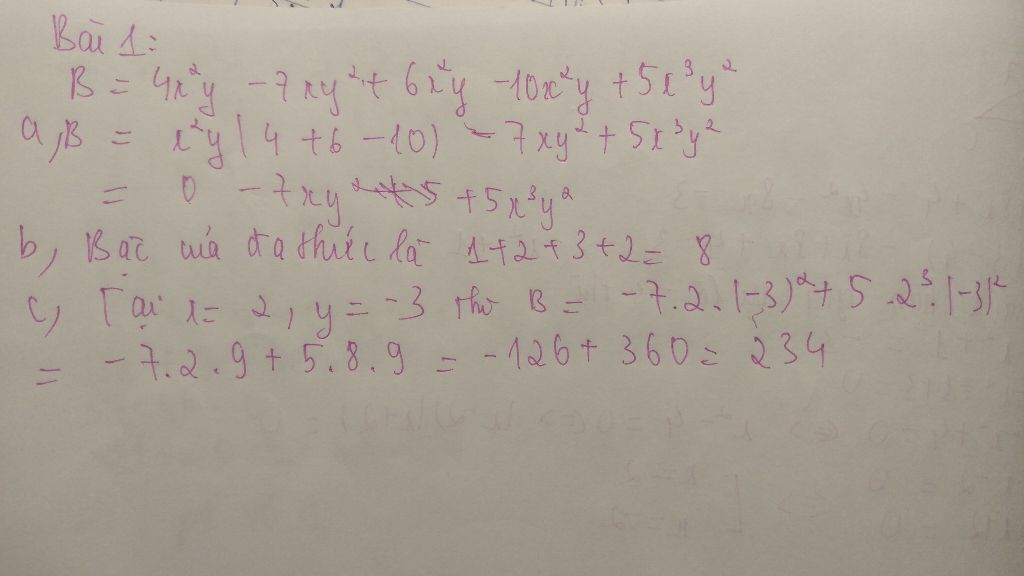 Bài 1:
B = 4x²y - 7xy² + 6x²y - 10x²y + 5x³y²
a, B = x²y (4 + 6 - 10) - 7xy² + 5x³y²
= 0 - 7xy² + 5x³y²
b, Bậc của đa thức là 1+2+3+2= 8
c, Tại x= 2, y = -3 thì B = -7.2.(-3)² + 5.2³.(-3)²
= -7.2.9 + 5.8.9 = -126 + 360 = 234